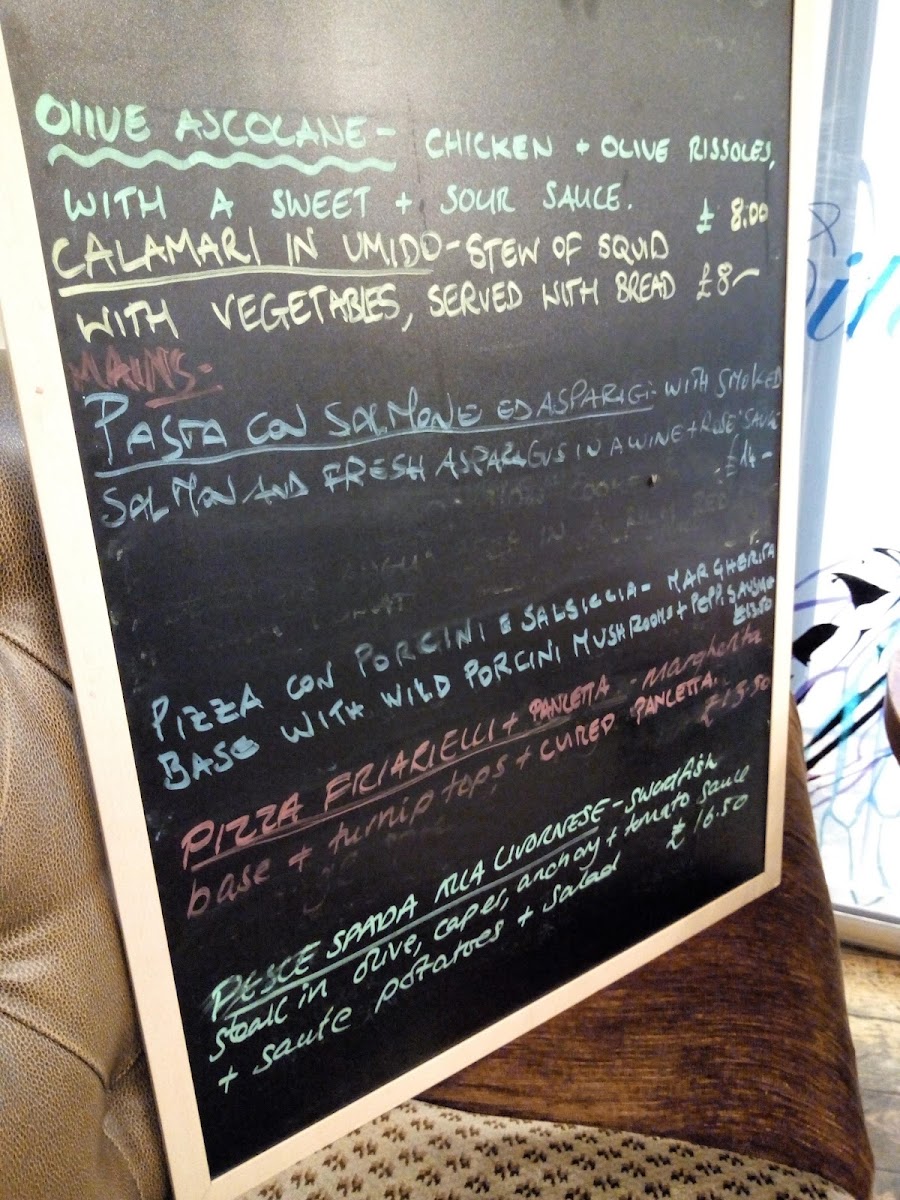 OLIVE ASCOLANE - CHICKEN + OLIVE RISSOLES,
WITH A SWEET + SOUR SAUCE. £ 8.00
CALAMARI IN UMIDO - STEW OF SQUID
WITH VEGETABLES, SERVED WITH BREAD £8-
MAINS:
PASTA CON SALMONE ED ASPARAGI - WITH SMOKED
SALMON AND FRESH ASPARAGUS IN A WINE + ROSE' SAUCE
£14-
PIZZA CON PORCINI E SALSICCIA - MARGHERITA
BASE WITH WILD PORCINI MUSHROOMS + PEPP. SAUSAGE
£13.50
PIZZA FRIARIELLI + PANCETTA - margherita
base + turnip tops + CURED PANCETTA.
£13.50
PESCE SPADA ALLA LIVORNESE - swordfish
steak in olive, caper, anchovy + tomato sauce
+ saute potatoes + salad £ 16.50